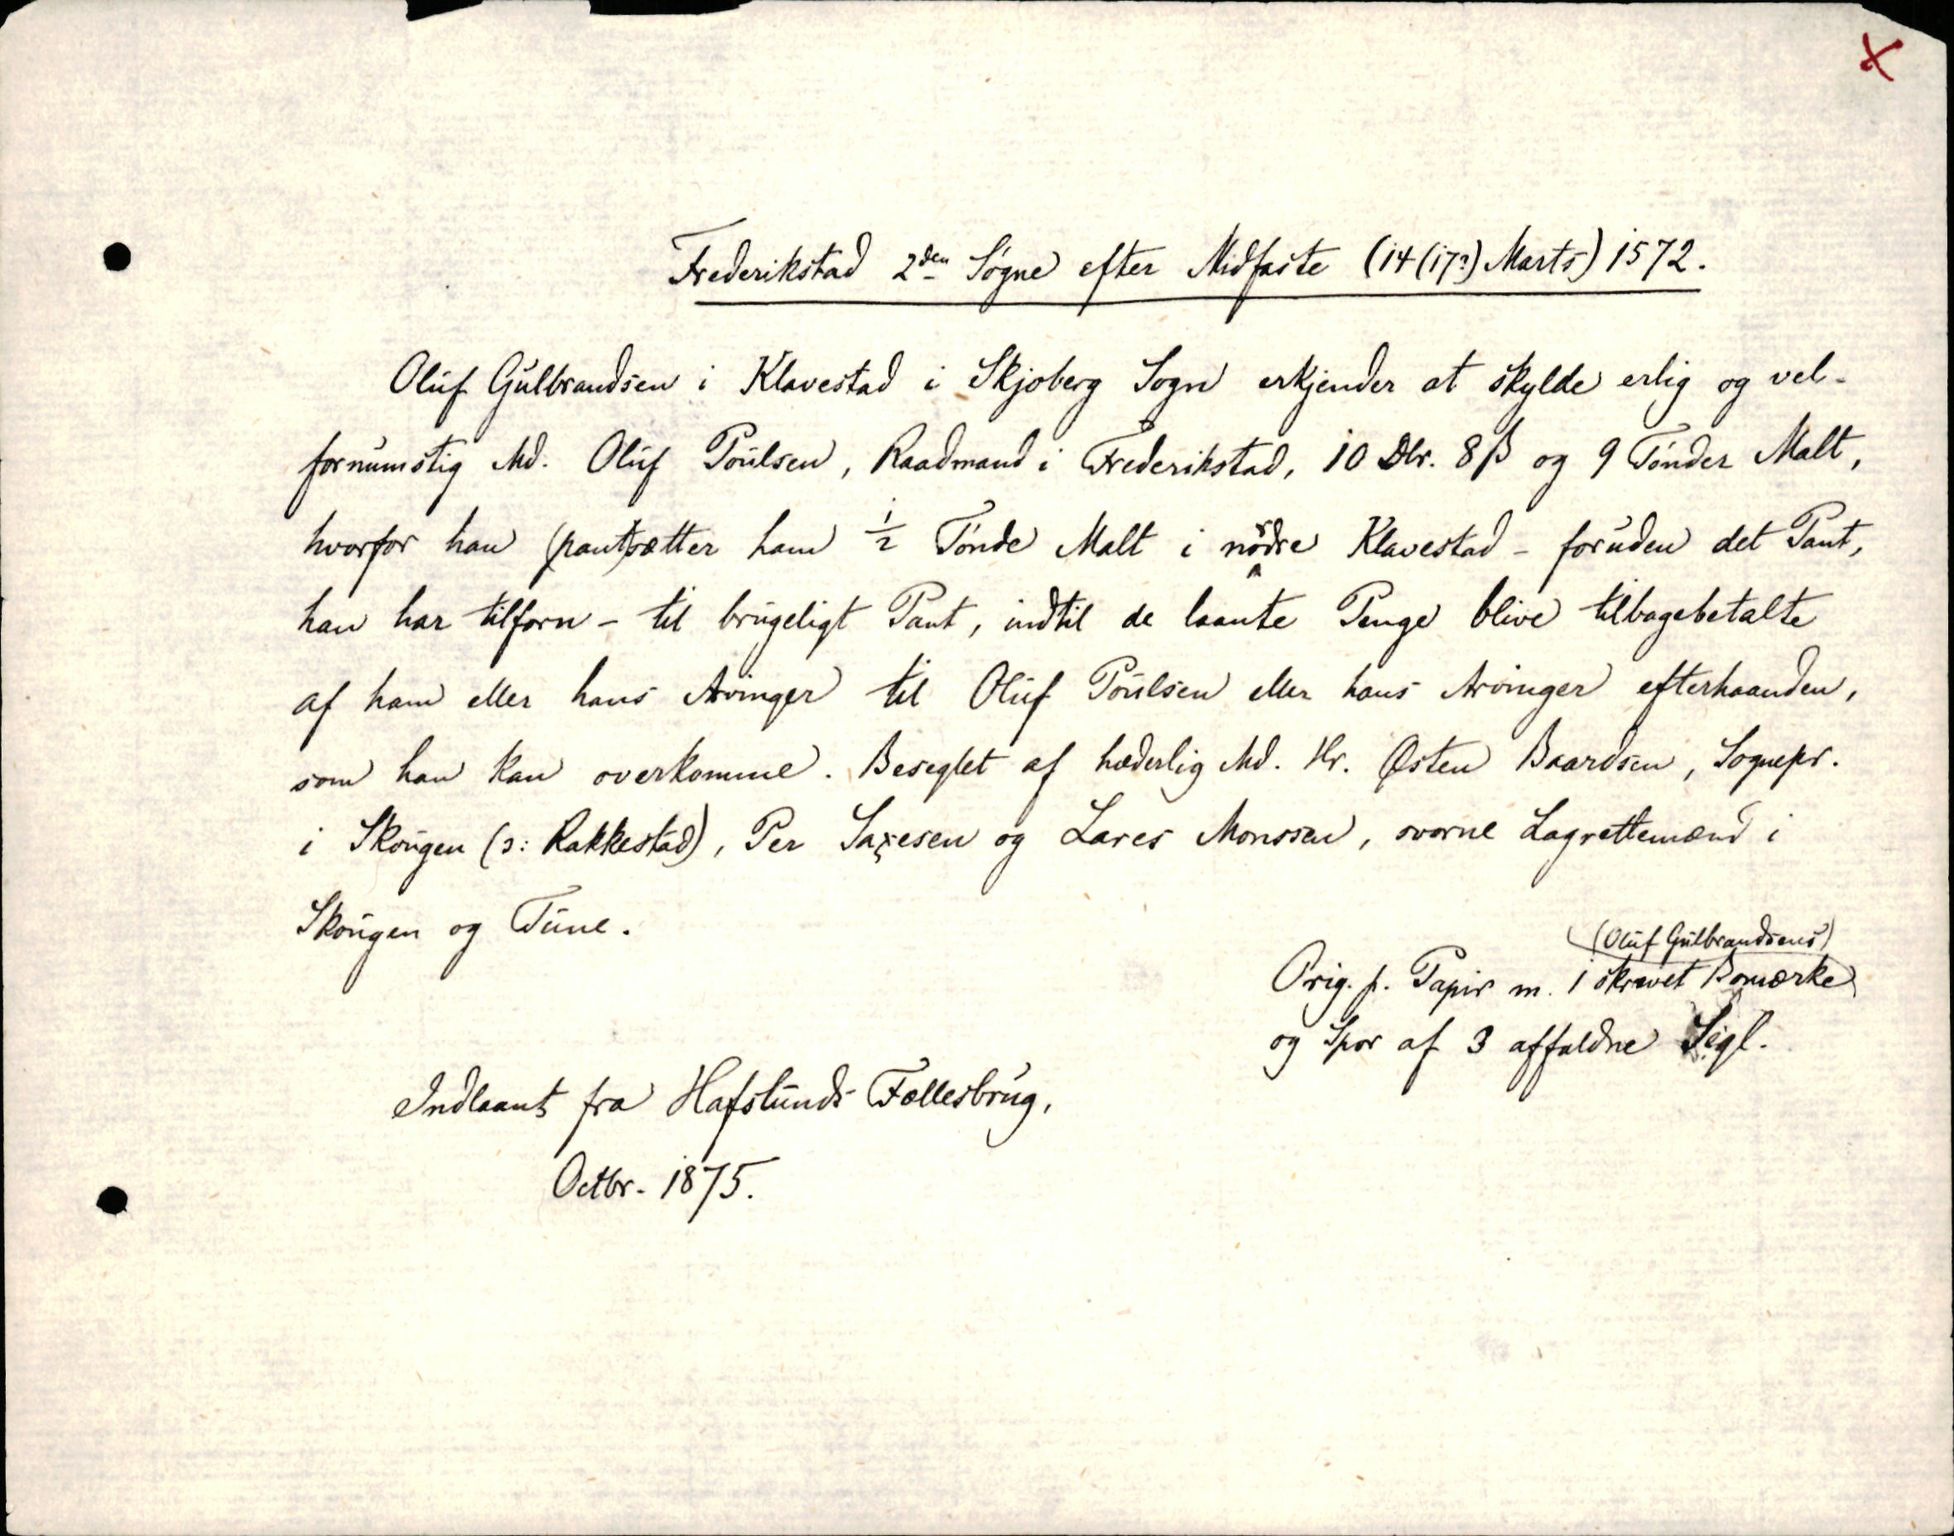 x
Frederikstad 2den Søgne efter Midfaste (14 (17?) Marts) 1572.
Oluf Gulbrandsen i Klavestad i Skjoberg Sogn erkjender at skylde erlig og vel-
fornumstig Md. Oluf Poulsen, Raadmand i Frederikstad, 10 Dlr. 8 β og 9 Tønder Malt,
hvorfor han (pant)sætter ham 1/2 Tønde Malt i nørdre Klavestad - foruden det Pant,
han har tilforn - til brugeligt Pant, indtil de laante Penge blive tilbagebetalte
af ham eller hans Arvinger til Oluf Poulsen eller hans Arvinger efterhaanden,
som han kan overkomme. Beseglet af hæderlig Md. Hr. Østen Baardsen, Sognepr.
i Skougen (ɔ: Rakkestad), Per Saxesen og Lares Monssen, svorne Lagrettemænd i
Skougen og Tune.
(Oluf Gulbrandsens)
Orig. p. Papir m. 1 skrevet Bomærke
og Spor af 3 affaldne Sigl.
Indlaant fra Hafslunds Fællesbrug,
Octbr. 1875.